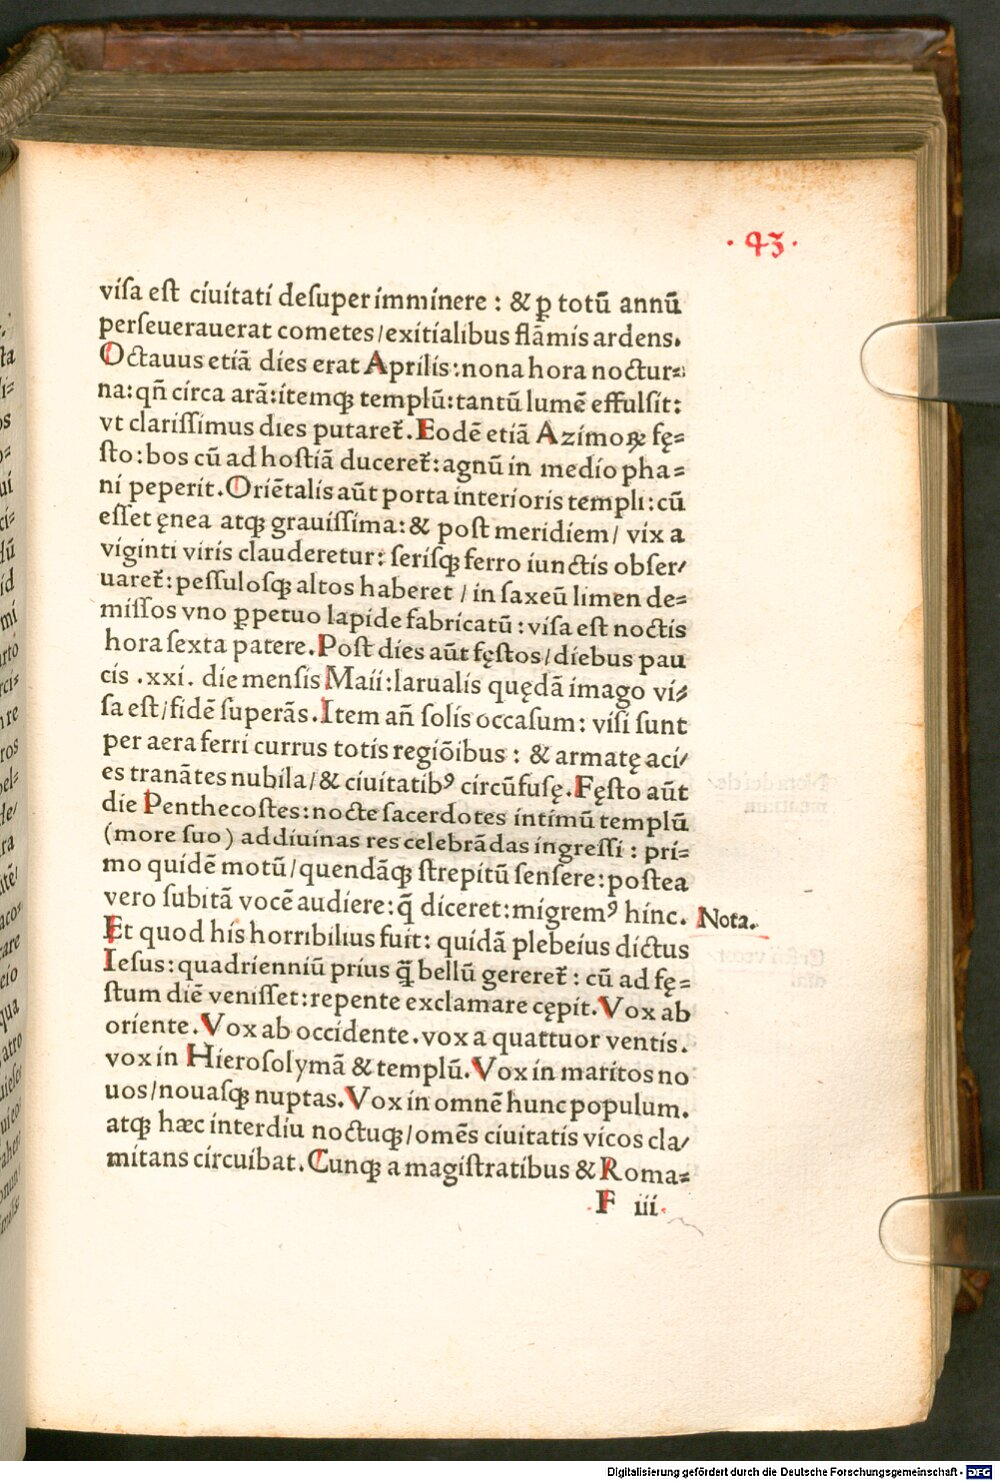 · 43 ·
viſa eſt ciuitati deſuper imminere : & ꝑ totū annū
perſeuerauerat cometes/exitialibus flāmis ardens.
Octauus etiā dies erat Aprilis:nona hora noctur⸗
na:qñ circa arā:itemqꝫ templū:tantū lumē effulſit:
vt clariſſimus dies putareť.Eodē etiā Azimoꝝ fę⸗
ſto:bos cū ad hoſtiā ducereť:agnū in medio pha⸗
ni peperit.Oriētalis aūt porta interioris templi:cū
eſſet ęnea atqꝫ grauiſſima:& poſt meridiem/ vix a
viginti viris clauderetur: ſeriſqꝫ ferro iunctis obſer/
uareť:peſſuloſqꝫ altos haberet / in ſaxeū limen de⸗
miſſos vno ꝑpetuo lapide fabricatū:viſa eſt noctis
hora ſexta patere.Poſt dies aūt fęſtos/diebus pau
cis .xxi. die menſis Maii:larualis quędā imago vi⸗
ſa eſt/fidē ſuperās.Item añ ſolis occaſum: viſi ſunt
per aera ferri currus totis regiōibus : & armatę aci/
es tranātes nubila/& ciuitatibꝰ circūfuſę.Fęſto aūt
die Penthecoſtes:nocte ſacerdotes intimū templū
(more ſuo) ad diuinas res celebrādas ingreſſi : pri⸗
mo quidē motū/quendāqꝫ ſtrepitū ſenſere:poſtea
vero ſubitā vocē audiere:q̄ diceret:migremꝰ hinc. Nota.
Et quod his horribilius fuit: quidā plebeius dictus
Ieſus:quadrienniū prius q̄ꝫ bellū gerereť: cū ad fę⸗
ſtum diē veniſſet:repente exclamare cępit.Vox ab
oriente.Vox ab occidente.vox a quattuor ventis.
vox in Hieroſolymā & templū.Vox in maritos no
uos/nouaſqꝫ nuptas.Vox in omnē hunc populum.
atqꝫ hæc interdiu noctuqꝫ/omēs ciuitatis vicos cla/
mitans circuibat.Cunqꝫ a magiſtratibus & Roma⸗
F iii.
Digitalisierung gefördert durch die Deutsche Forschungsgemeinschaft - DFG